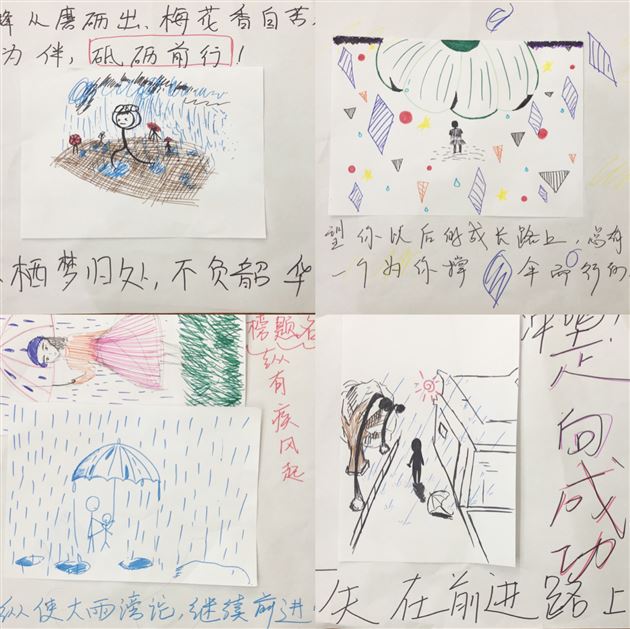 锋从磨砺出、梅花香自苦
为伴，砥砺前行！
栖梦归处，不负韶华
望你以后的成长路上，总有
一个为你撑伞前行的
榜题名
纵有疾风起
纵使大雨滂沱，继续前进
走向成功
在前进路上